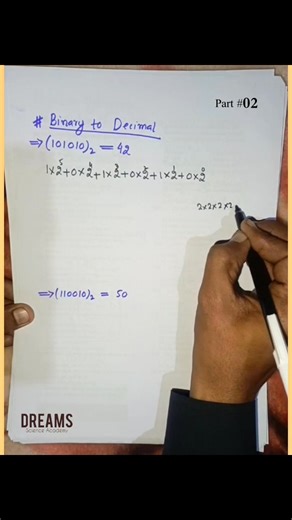 Part #02
# Binary to Decimal
⇒(101010)₂ = 42
1×2⁵+0×2⁴+1×2³+0×2²+1×2¹+0×2⁰
2×2×2×2
⇒(110010)₂ = 50
DREAMS
Science Academy